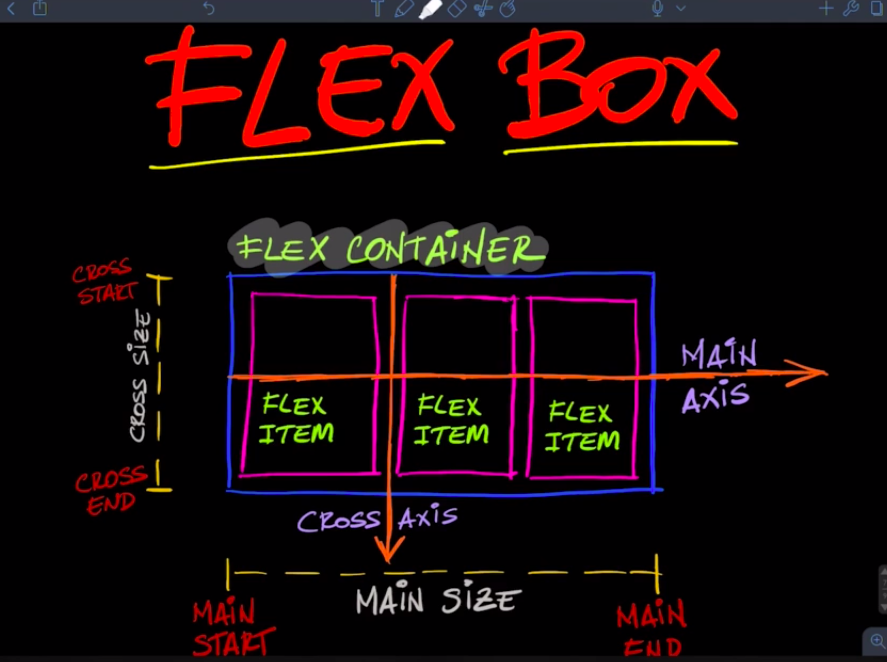 FLEX BOX
FLEX CONTAINER
CROSS
START
CROSS SIZE
CROSS
END
FLEX
ITEM
FLEX
ITEM
FLEX
ITEM
MAIN
AXIS
CROSS AXIS
MAIN SIZE
MAIN
START
MAIN
END